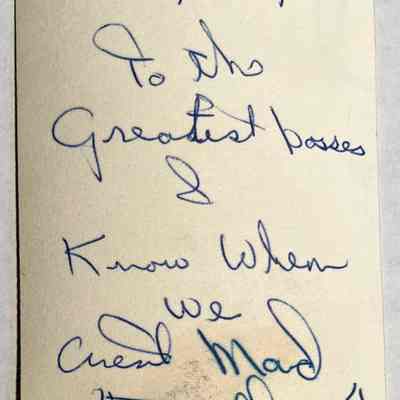 To the
Greatest bosses
I
Know When
we
arent Mad